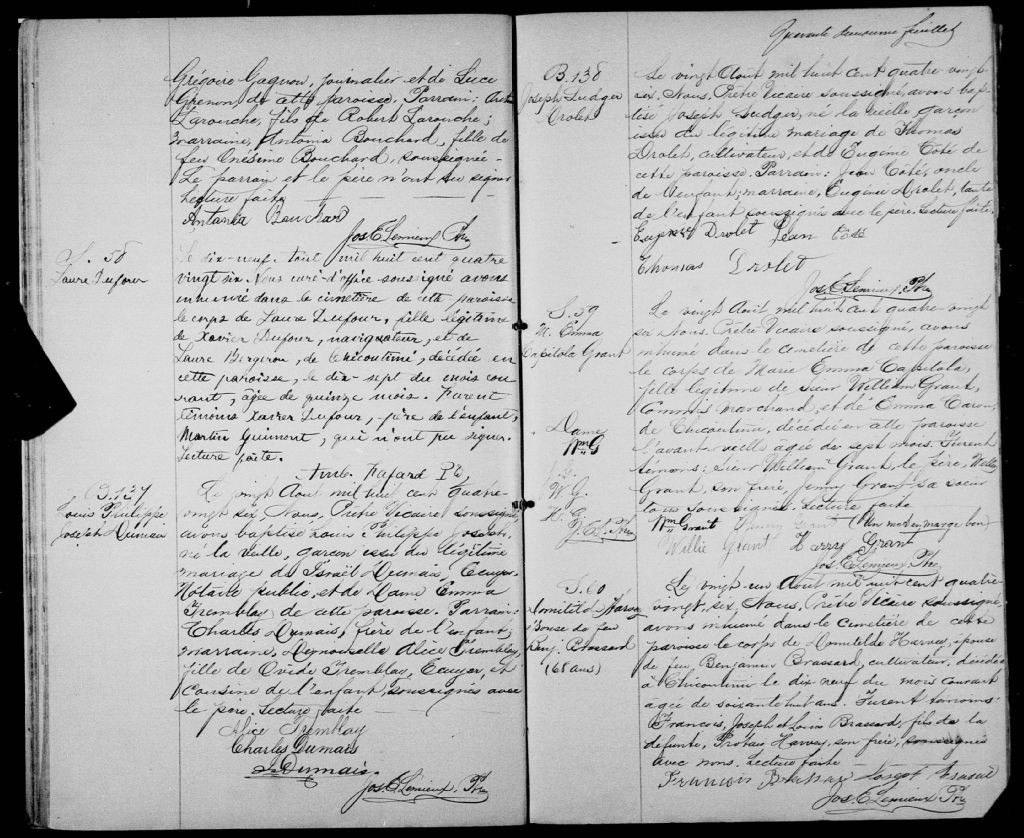 Grégoire Gagnon, journalier et de Luce
Grenon, de cette paroisse. Parrain:
Larouche, fils de Robert Larouche;
marraine, Antonia Bouchard, fille de
feu Onésime Bouchard, soussignée.
Le parrain et le père n'ont su signer
Lecture faite
Antania Bouchard
Jos E Lemieux Ptre
S. 58
Laure Dufour
Le dix-neuf Aout mil huit cent quatre
vingt six, Nous curé d'office soussigné avons
inhumé dans le cimetière de cette paroisse
le corps de Laure Dufour, fille légitime
de Xavier Dufour, navigateur, et de
Laure Bergeron, de Chicoutimi, décédée en
cette paroisse, le dix-sept du mois cou
rant, âgée de quinze mois. Furent
témoins Xavier Dufour, père de l'enfant,
Martin Guimont, qui n'ont pu signer.
Lecture faite.
Amb. Fafard Ptre
B. 137
Louis Philippe
Joseph Dumais
Le vingt Aout mil huit cent quatre-
vingt six, Nous, Prêtre Vicaire soussigné
avons baptisé Louis Philippe Joseph
né la veille, garçon issu du légitime
mariage de Israël Dumais, Ecuyer
Notaire public, et de Dame Emma
Tremblay de cette paroisse. Parrain:
Charles Dumais, frère de l'enfant,
marraine, Demoiselle Alice Tremblay,
fille de Ovide Tremblay, Ecuyer, et
Cousine de l'enfant, soussignés avec
le père. Lecture faite
Alice Tremblay
Charles Dumais
Is Dumais.
Jos E Lemieux. Ptre
Quarante deuxième feuillet
B. 138
Joseph Ludger
Drolet
Le vingt Aout mil huit cent quatre-vingt-
six, Nous, Prêtre Vicaire soussigné, avons bap
tisé Joseph Ludger, né la veille, garçon
issu du légitime mariage de Thomas
Drolet, cultivateur, et de Eugénie Côté de
cette paroisse. Parrain: Jean Côté, oncle
de l'enfant; marraine, Eugénie Drolet, tante
de l'enfant soussignés avec le père. Lecture faite.
Eugénie Drolet Jean Côté
Thomas Drolet
Jos E Lemieux, Ptre
S. 59
M. Emma
Capitola Grant
Le vingt Aout mil huit cent quatre-vingt
six Nous, Prêtre Vicaire soussigné, avons
inhumé dans le cimetière de cette paroisse
le corps de Marie Emma Capitola,
fille légitime de sieur William Grant,
Commis Marchand, et de Emma Caron,
de Chicoutimi, décédée en cette paroisse
l'avant-veille âgée de sept mois. Furent
témoins: sieur William Grant, le père, Willie
Grant, son frère, Jenny Grant sa soeur
tous soussignés. Lecture faite
Dame
Wm G
W. G.
H. G.
Wm Grant Jenny Grant (Un mot en marge bon)
Willie Grant Harry Grant
Jos E Lemieux Ptre
S. 60
Domitild Harvey
Epouse de feu
Benj. Brassard
(68 ans)
Le vingt un Aout mil huit cent quatre-
vingt, six, Nous, Prêtre Vicaire soussigné,
avons inhumé dans le cimetière de cette
paroisse le corps de Domitilde Harvey, épouse
de feu, Benjamin Brassard, cultivateur, décédée
à Chicoutimi le dix neuf du mois courant
agée de soixante huit ans. Furent témoins:
François, Joseph et Louis Brassard, fils de la
défunte, Protais Harvey, son frère, soussignés
avec nous. Lecture faite
Francois Brassar
Jos E Lemieux Ptre